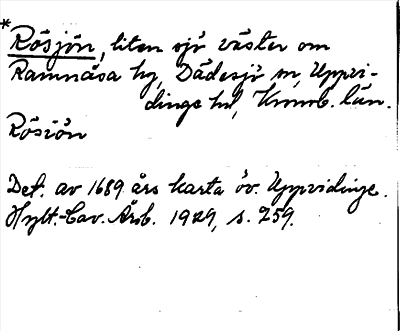 * Rösjön, liten sjö väster om
Ramnåsa by, Dädesjö sn, Uppvi-
dinge hd, Kronob. län.
Rösiön
Def. av 1689 års karta öv. Uppvidinge.
Hylt.-Cav. Årsb. 1929, s. 259.